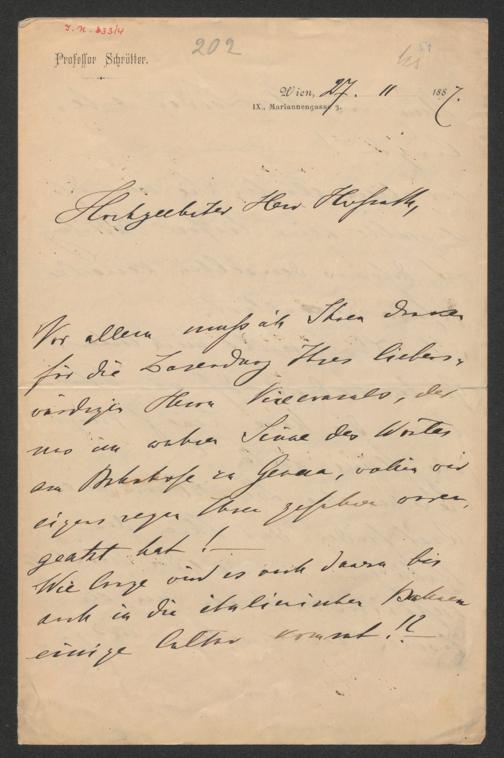 J. N. 833/4
202
Professor Schrötter.
Wien, 27. 11 1887.
IX., Mariannengasse 3.
Hochgeehrter Herr Hofrath,
Vor allem muss ich Ihnen danken
für die Zusendung Ihres liebens-
würdigen Herrn Viceconsuls, der
uns im wahren Sinne des Wortes
am Bahnhofe zu Genua, wohin wir
eigens wegen Ihnen gefahren waren,
geatzt hat! —
Wie lange wird es noch dauern bis
auch in die italienischen Bahnen
einige Cultur kommt!? —